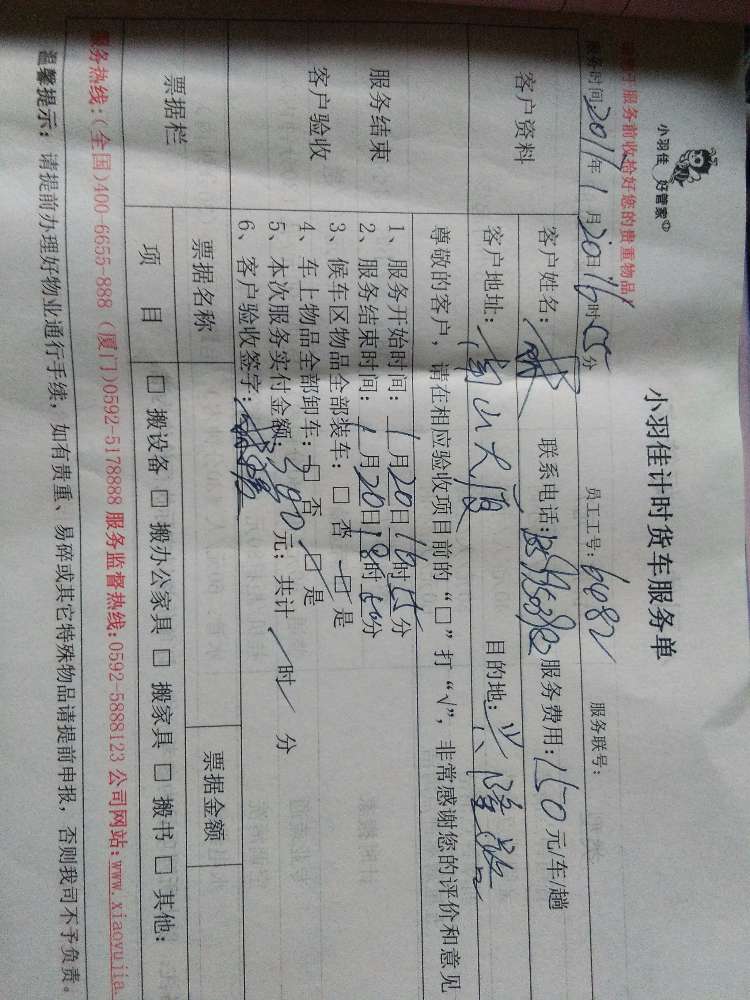 小羽佳 好管家
小羽佳计时货车服务单
请于服务前收拾好您的贵重物品!
服务时间:2011年1月20日16时55分 员工工号:6482 服务联号:
客户资料
客户姓名: 联系电话: 服务费用:150元/车/趟
客户地址:富山大厦 目的地:兴隆路口
尊敬的客户,请在相应验收项目前的“□”打“√”,非常感谢您的评价和意见
服务结束
客户验收
1、服务开始时间:1月20日16时55分
2、服务结束时间:1月20日18时50分
3、候车区物品全部装车:□ 否 □ 是
4、车上物品全部卸车:□ 否 □ 是
5、本次服务实付金额:300元;共计 时 分
6、客户验收签字:
票据栏 票据名称 票据金额
项 目 □ 搬设备 □ 搬办公家具 □ 搬家具 □ 搬书 □ 其他:
服务热线:(全国)400-6655-888 (厦门)0592-5178888 服务监督热线:0592-5888123 公司网站:www.xiaoyujia.
温馨提示:请提前办理好物业通行手续,如有贵重、易碎或其它特殊物品请提前申报,否则我司不予负责。